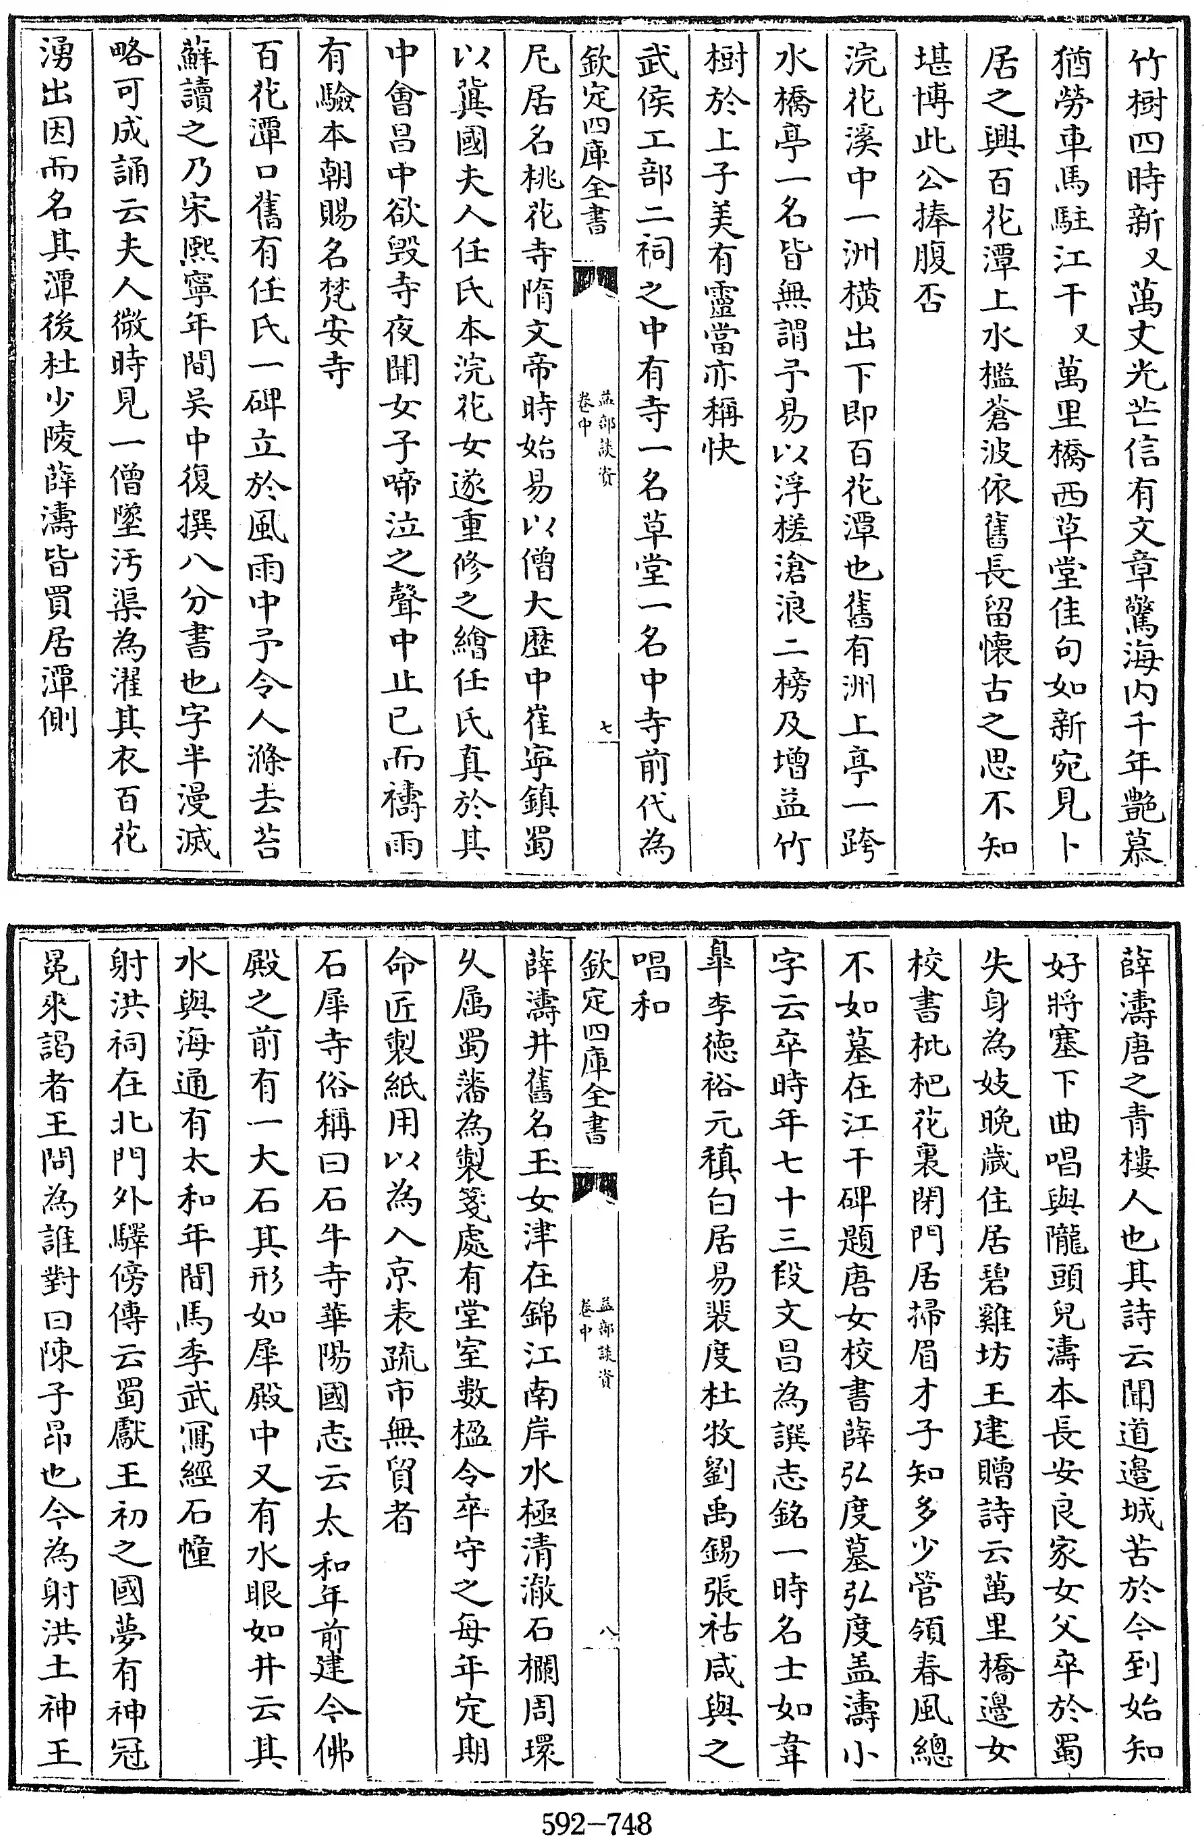 竹樹四時新又萬丈光芒信有文章驚海内千年艶慕
猶勞車馬駐江干又萬里橋西草堂佳句如新宛見卜
居之興百花潭上水檻蒼波依舊長留懷古之思不知
堪博此公捧腹否
浣花溪中一洲橫出下即百花潭也舊有洲上亭一跨
水橋亭一名皆無謂予易以浮槎滄浪二榜及增益竹
樹於上子美有靈當亦稱快
武侯工部二祠之中有寺一名草堂一名中寺前代為
欽定四庫全書
益部談資
卷中
七
尼居名桃花寺隋文帝時始易以僧大歴中崔寜鎮蜀
以冀國夫人任氏本浣花女遂重修之繪任氏真於其
中會昌中欲毁寺夜聞女子啼泣之聲中止已而禱雨
有驗本朝賜名梵安寺
百花潭口舊有任氏一碑立於風雨中予令人滌去苔
蘚讀之乃宋熙寧年間吳中復撰八分書也字半漫滅
略可成誦云夫人微時見一僧墜汚渠為濯其衣百花
湧出因而名其潭後杜少陵薛濤皆買居潭側
薛濤唐之青樓人也其詩云聞道邉城苦於今到始知
好將塞下曲唱與隴頭兒濤本長安良家女父卒於蜀
失身為妓晩歲住居碧雞坊王建贈詩云萬里橋邉女
校書枇杷花裏閉門居掃眉才子知多少管領春風總
不如墓在江干碑題唐女校書薛弘度墓弘度盖濤小
字云卒時年七十三段文昌為譔志銘一時名士如韋
臯李徳裕元稹白居易裴度杜牧劉禹錫張祜咸與之
唱和
欽定四庫全書
益部談資
卷中
八
薛濤井舊名玉女津在錦江南岸水極清澈石欄周環
久屬蜀藩為製箋處有堂室數楹令卒守之每年定期
命匠製紙用以為入京表疏市無貿者
石犀寺俗稱曰石牛寺華陽國志云太和年前建今佛
殿之前有一大石其形如犀殿中又有水眼如井云其
水與海通有太和年間馬季武寫經石幢
射洪祠在北門外驛傍傳云蜀獻王初之國夢有神冠
冕來謁者王問為誰對曰陳子昂也今為射洪土神王
592-748